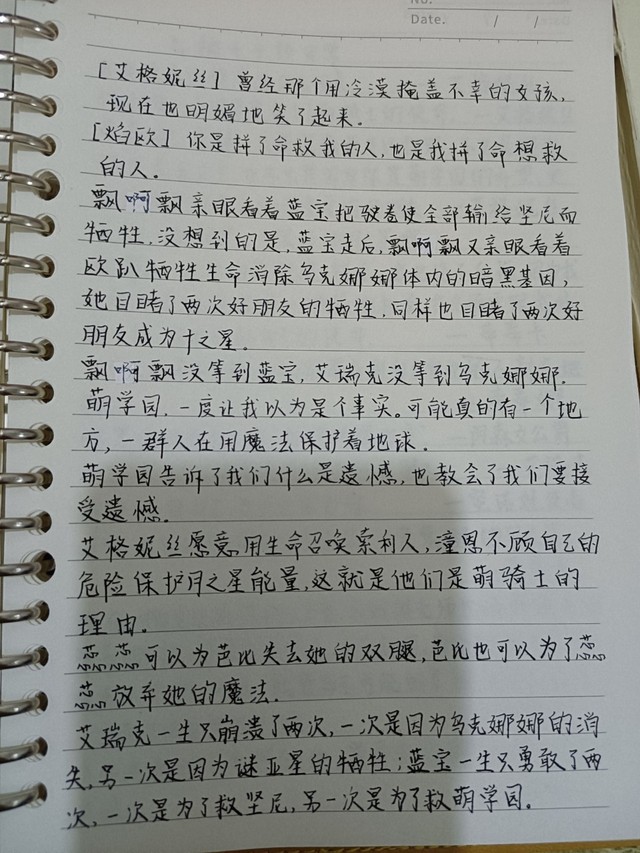 No.
Date. / /
[艾格妮丝] 曾经那个用冷漠掩盖不幸的女孩,
现在也明媚地笑了起来.
[焰欧] 你是拼了命救我的人,也是我拼了命想救
的人.
飘啊飘亲眼看着蓝宝把驭卷使全部输给坚尼而
牺牲,没想到的是,蓝宝走后,飘啊飘又亲眼看着
欧趴牺牲生命消除乌克娜娜体内的暗黑基因,
她目睹了两次好朋友的牺牲,同样也目睹了两次好
朋友成为十之星.
飘啊飘没等到蓝宝,艾瑞克没等到乌克娜娜.
萌学园,一度让我以为是个事实。可能真的有一个地
方,一群人在用魔法保护着地球.
萌学园告诉了我们什么是遗憾,也教会了我们要接
受遗憾.
艾格妮丝愿意用生命召唤索利人,潼恩不顾自己的
危险保护月之星能量,这就是他们是萌骑士的
理由.
蕊蕊可以为芭比失去她的双腿,芭比也可以为了蕊
蕊放弃她的魔法.
艾瑞克一生只崩溃了两次,一次是因为乌克娜娜的消
失,另一次是因为谜亚星的牺牲;蓝宝一生只勇敢了两
次,一次是为了救坚尼,另一次是为了救萌学园.